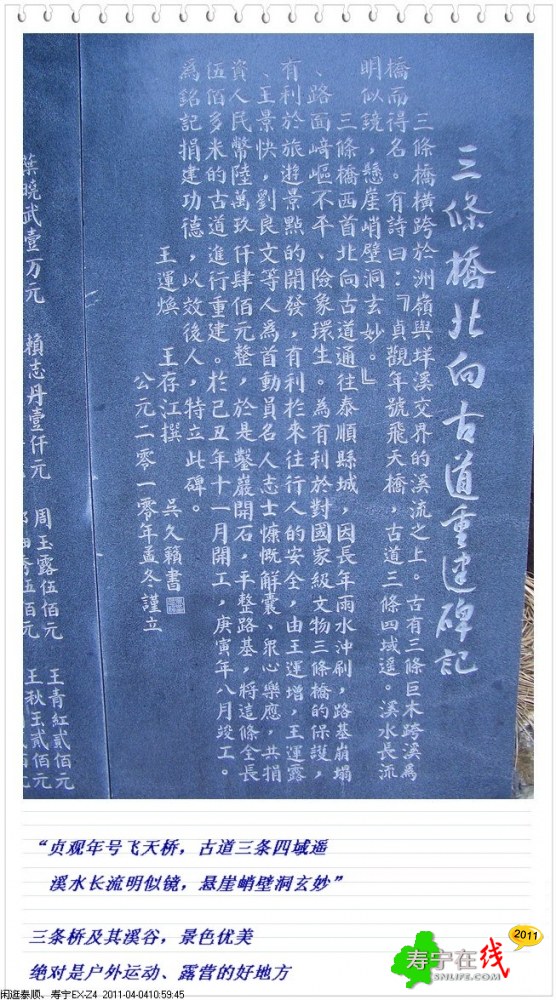 三條橋北向古道重建碑記
三條橋橫跨於洲嶺與垟溪交界的溪流之上。古有三條巨木跨溪爲
橋而得名。有詩曰：『貞觀年號飛天橋，古道三條四域遥。溪水長流
明似鏡，懸崖峭壁洞玄妙。』
三條橋西首北向古道通往泰順縣城，因長年雨水冲刷，路基崩塌
、路面崎嶇不平、險象環生。為有利於對國家級文物三條橋的保護，
有利於旅遊景點的開發，有利於來往行人的安全，由王運增，王運露
、王景快，劉良文等人為首動員名人志士慷慨解囊、眾心樂應，共捐
資人民幣陸萬玖仟肆佰元整，於是鑿巖開石，平整路基，將這條全長
伍佰多米的古道進行重建。於己丑年十一月開工，庚寅年八月竣工。
為銘記捐建功德，以效後人，特立此碑。
王運煥 王存江撰 吳久籟書
公元二零一零年孟冬謹立
葉曉武壹万元 賴志丹壹仟元 周玉露伍佰元 王青紅貳佰元
伍佰元 王秋玉貳佰元
“贞观年号飞天桥，古道三条四域遥
溪水长流明似镜，悬崖峭壁洞玄妙”
三条桥及其溪谷，景色优美
绝对是户外运动、露营的好地方
2011
寿宁在线
SNLIFE.COM
闲逛泰顺、寿宁EX-Z4 2011-04-0410:59:45